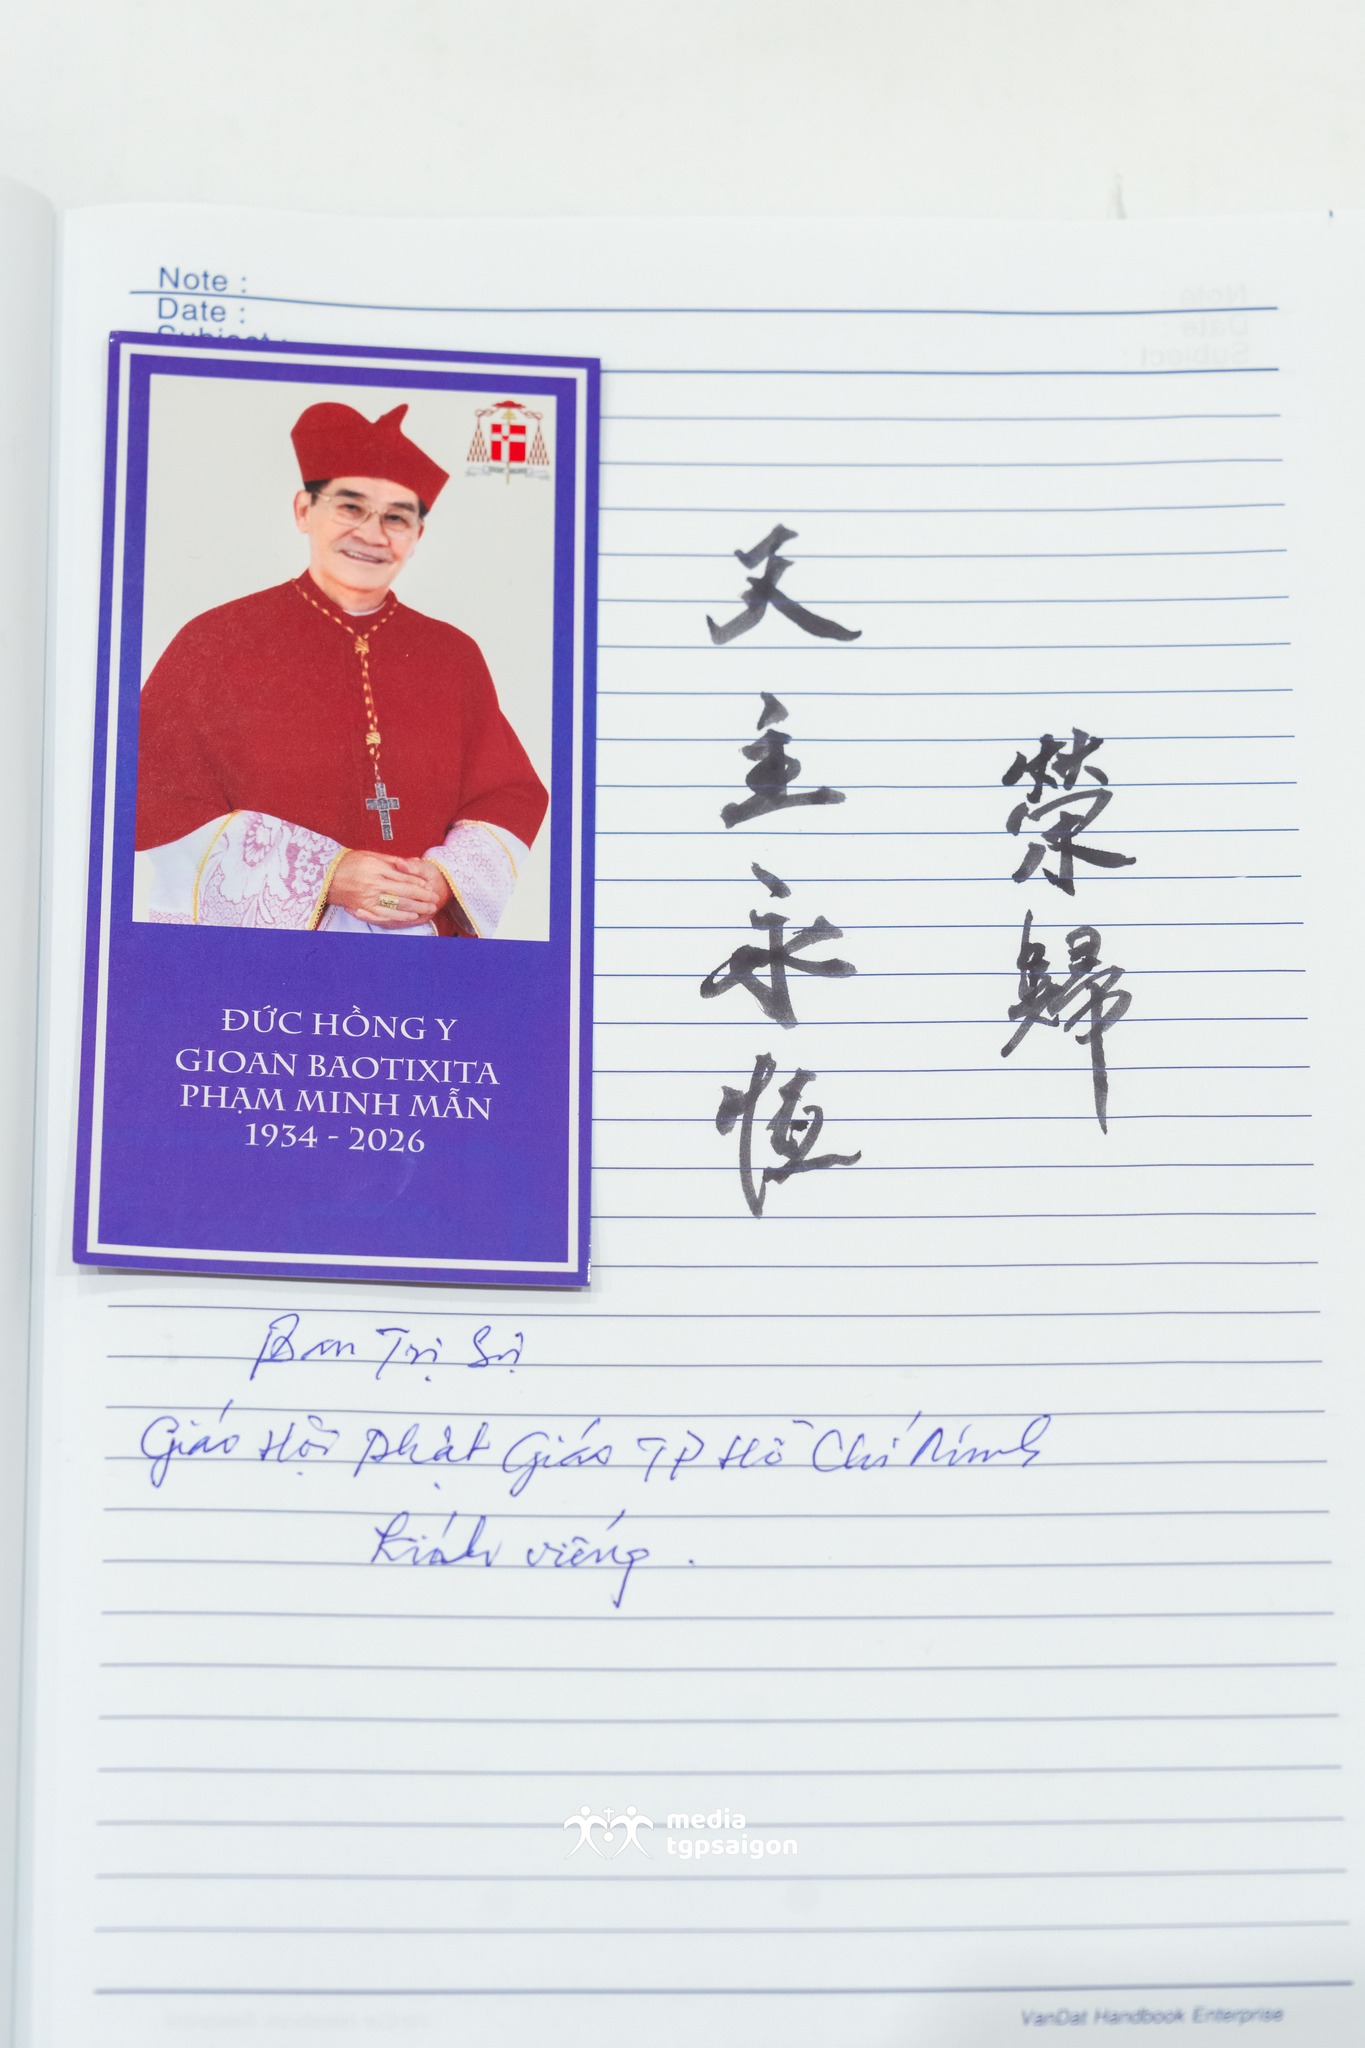 Note :
Date :
Subject :
ĐỨC HỒNG Y
GIOAN BAOTIXITA
PHẠM MINH MẪN
1934 - 2026
榮歸
天主永恆
Ban Trị Sự
Giáo Hội Phật Giáo TP Hồ Chí Minh
Kính viếng.
media
tgpsaigon
VanDat Handbook Enterprise